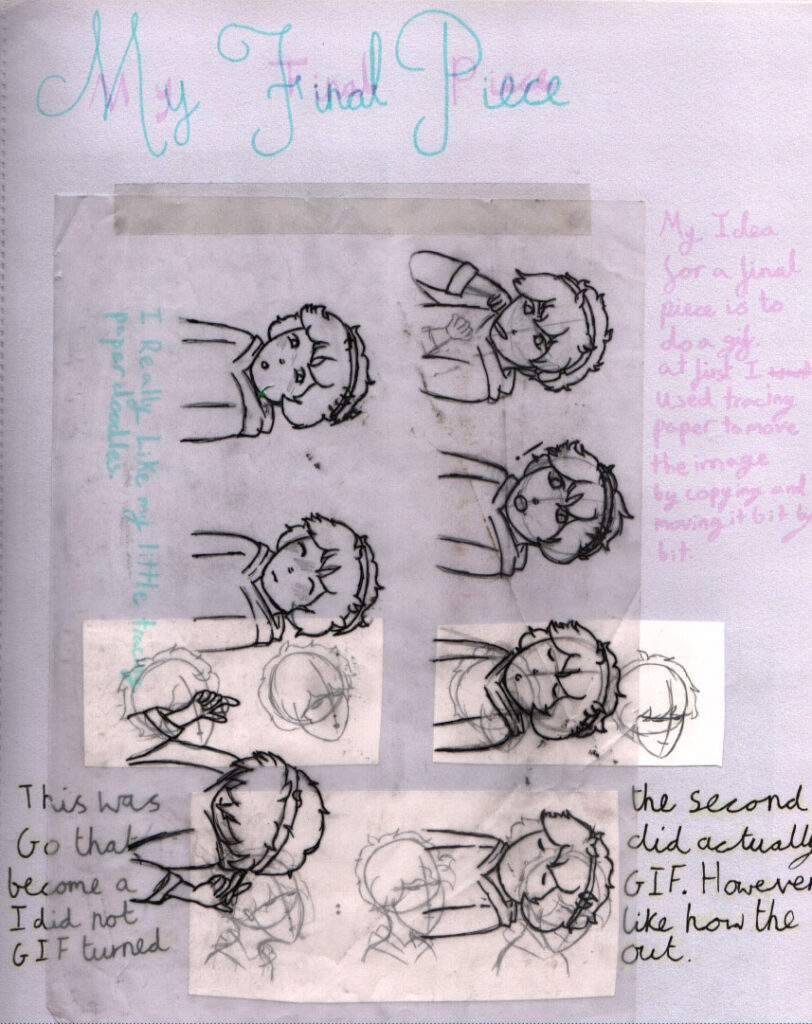 My Final Piece
My Idea
for a final
piece is to
do a gif.
at first I
used tracing
paper to move
the image
by copying and
moving it bit by
bit.
I Really Like my little tracing
paper doodles.
This was the second
Go that did actually
become a GIF. However
I did not like how the
GIF turned out.